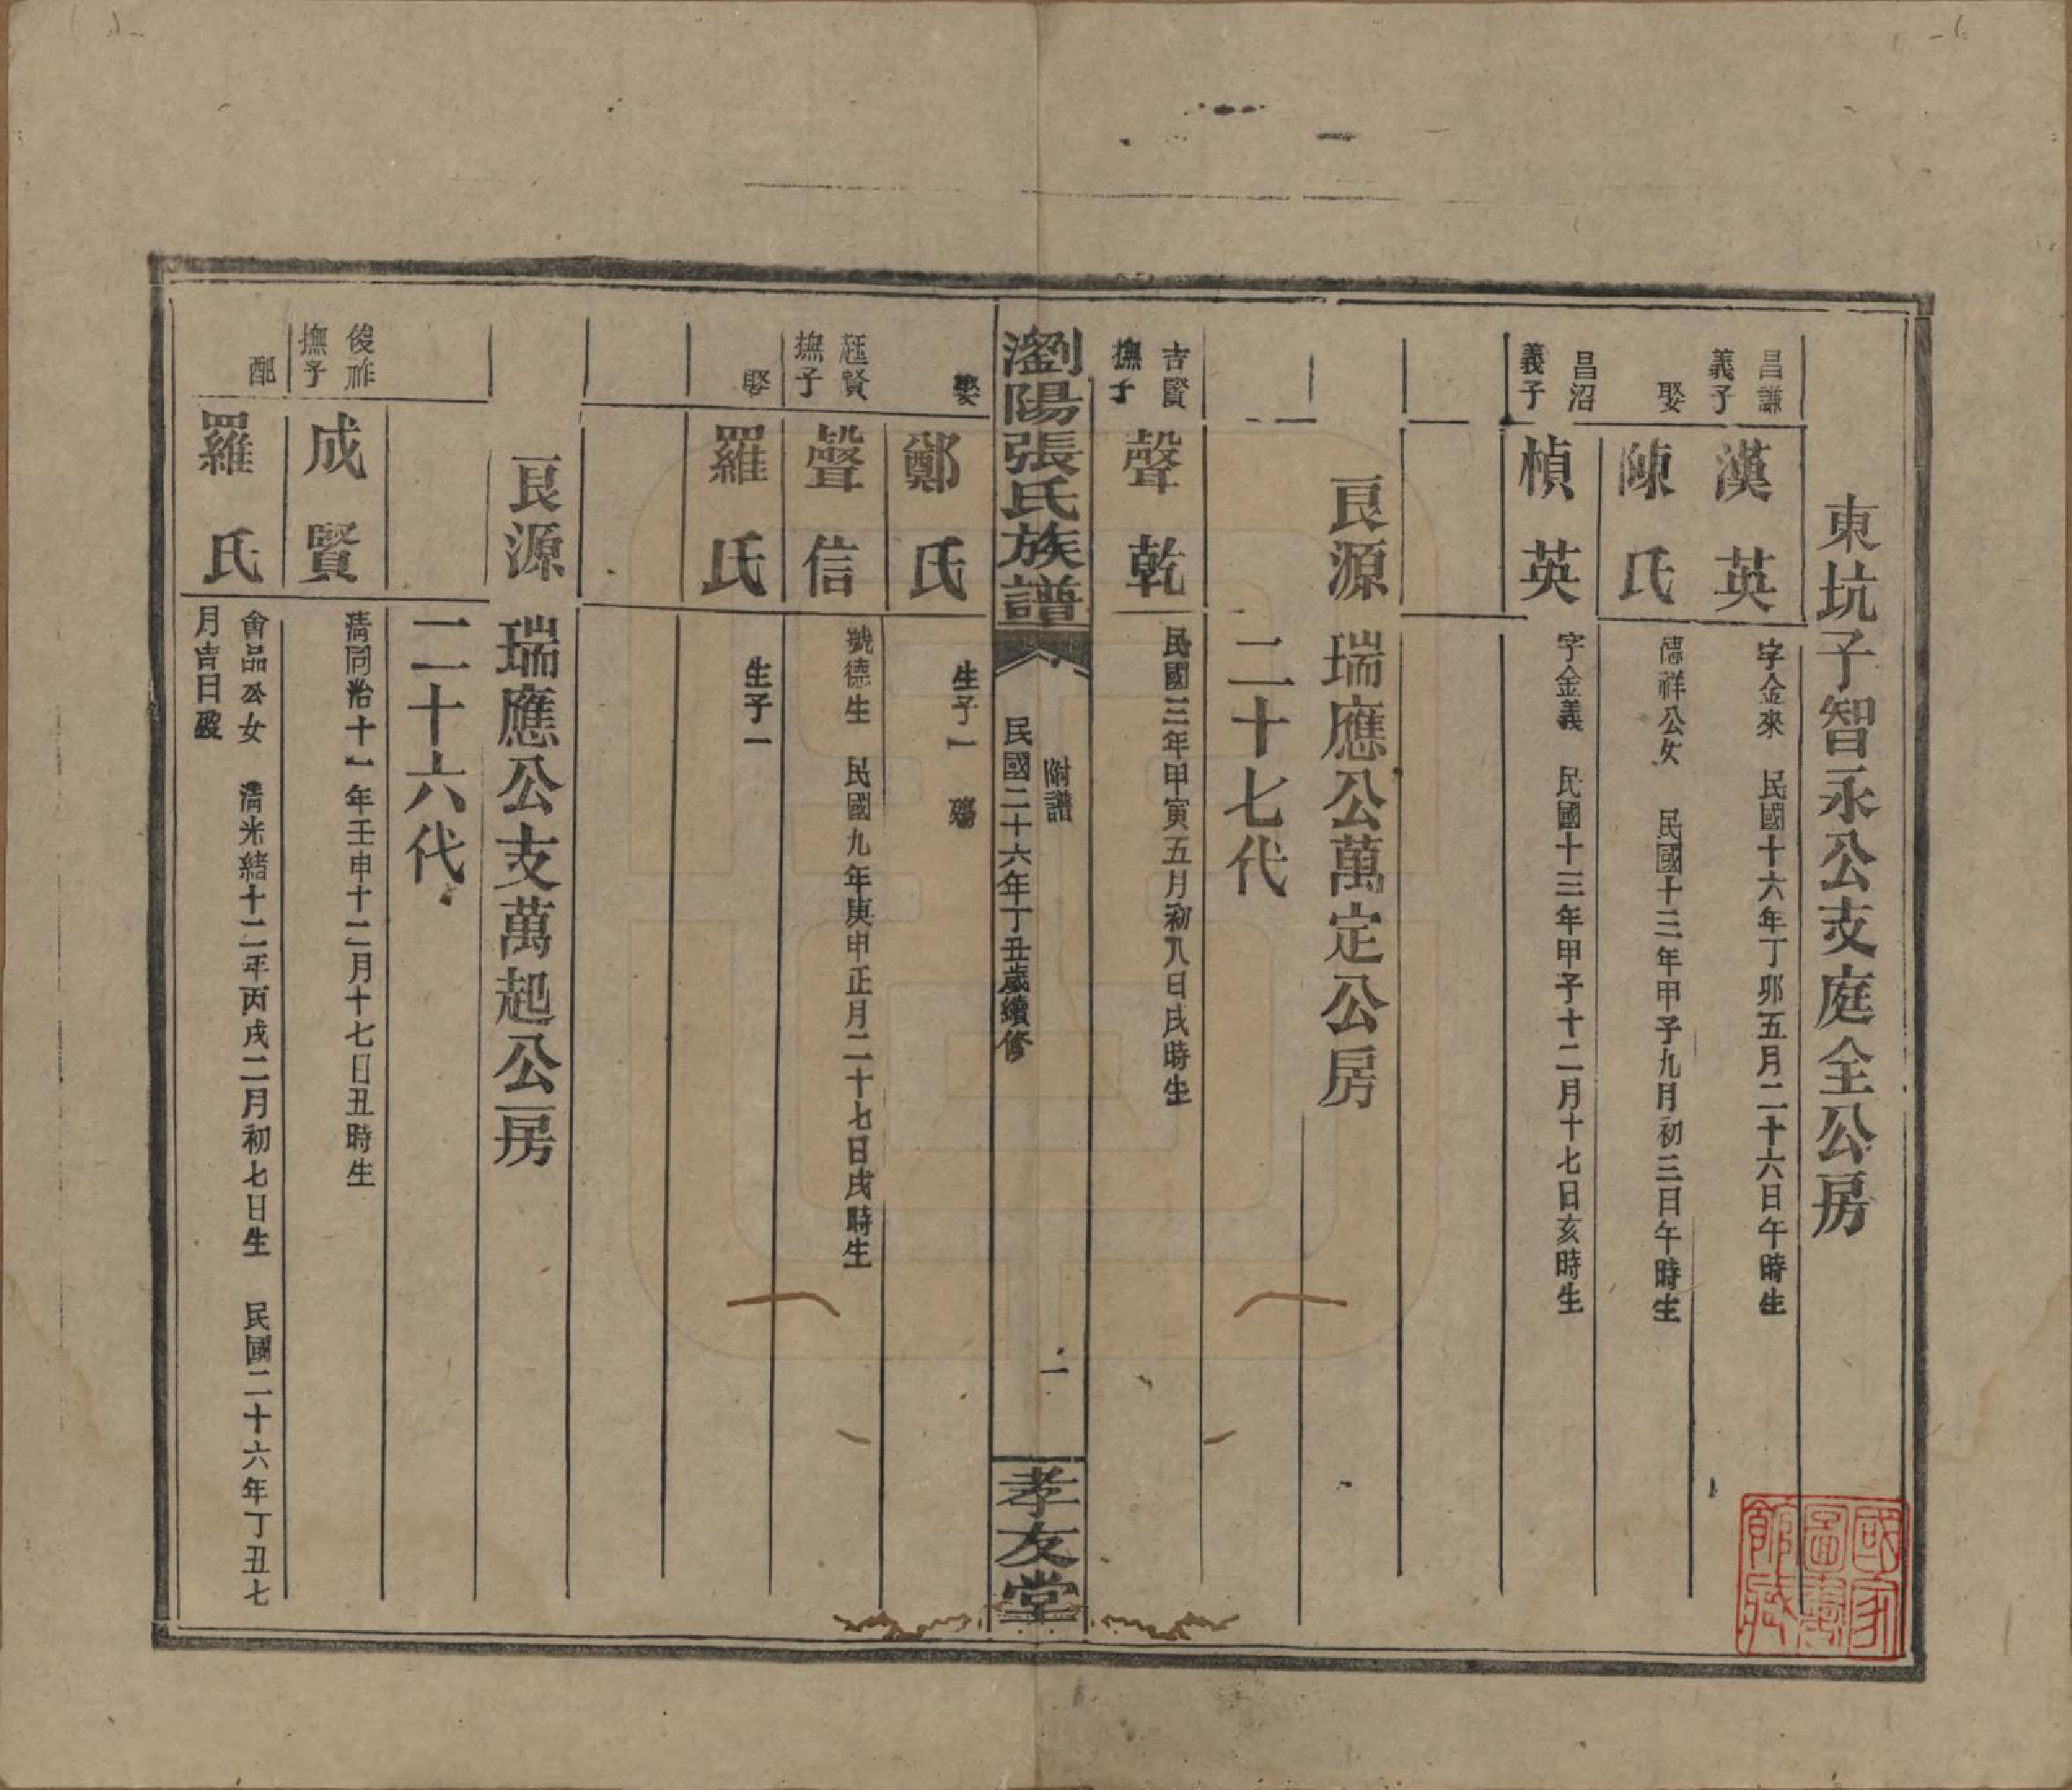 東坑子智永公支庭全公房
昌謙義子
漢英
字金來　民國十六年丁卯五月二十六日午時生
娶
陳氏
德祥公女　民國十三年甲子九月初三日午時生
昌沼義子
楨英
字金義　民國十三年甲子十二月十七日亥時生
良源　瑞應公萬定公房
二十七代
吉賢撫子
聲乾
民國三年甲寅五月初八日戌時生
瀏陽張氏族譜
附譜
民國二十六年丁丑歲續修
一
孝友堂
娶
鄭氏
生子一　殤
廷賢撫子
聲信
號德生　民國九年庚申正月二十七日戌時生
娶
羅氏
生子一
良源　瑞應公支萬起公房
二十六代
俊祚撫子
成賢
清同治十一年壬申十二月十七日丑時生
配
羅氏
會品公女　清光緒十二年丙戌二月初七日生　民國二十六年丁丑七
月吉日歿
國家圖書館藏